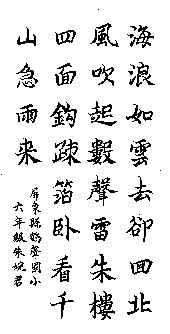 海浪如雲去卻回北
風吹起數聲雷朱樓
四面鉤疎箔卧看千
山急雨来
屏東縣鶴聲國小
六年級朱婉君